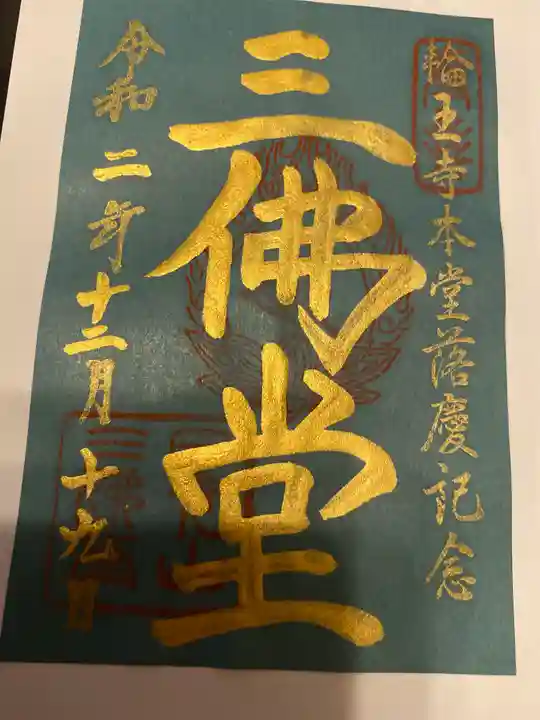 輪王寺本堂落慶記念
三佛堂
令和二年十二月十九日